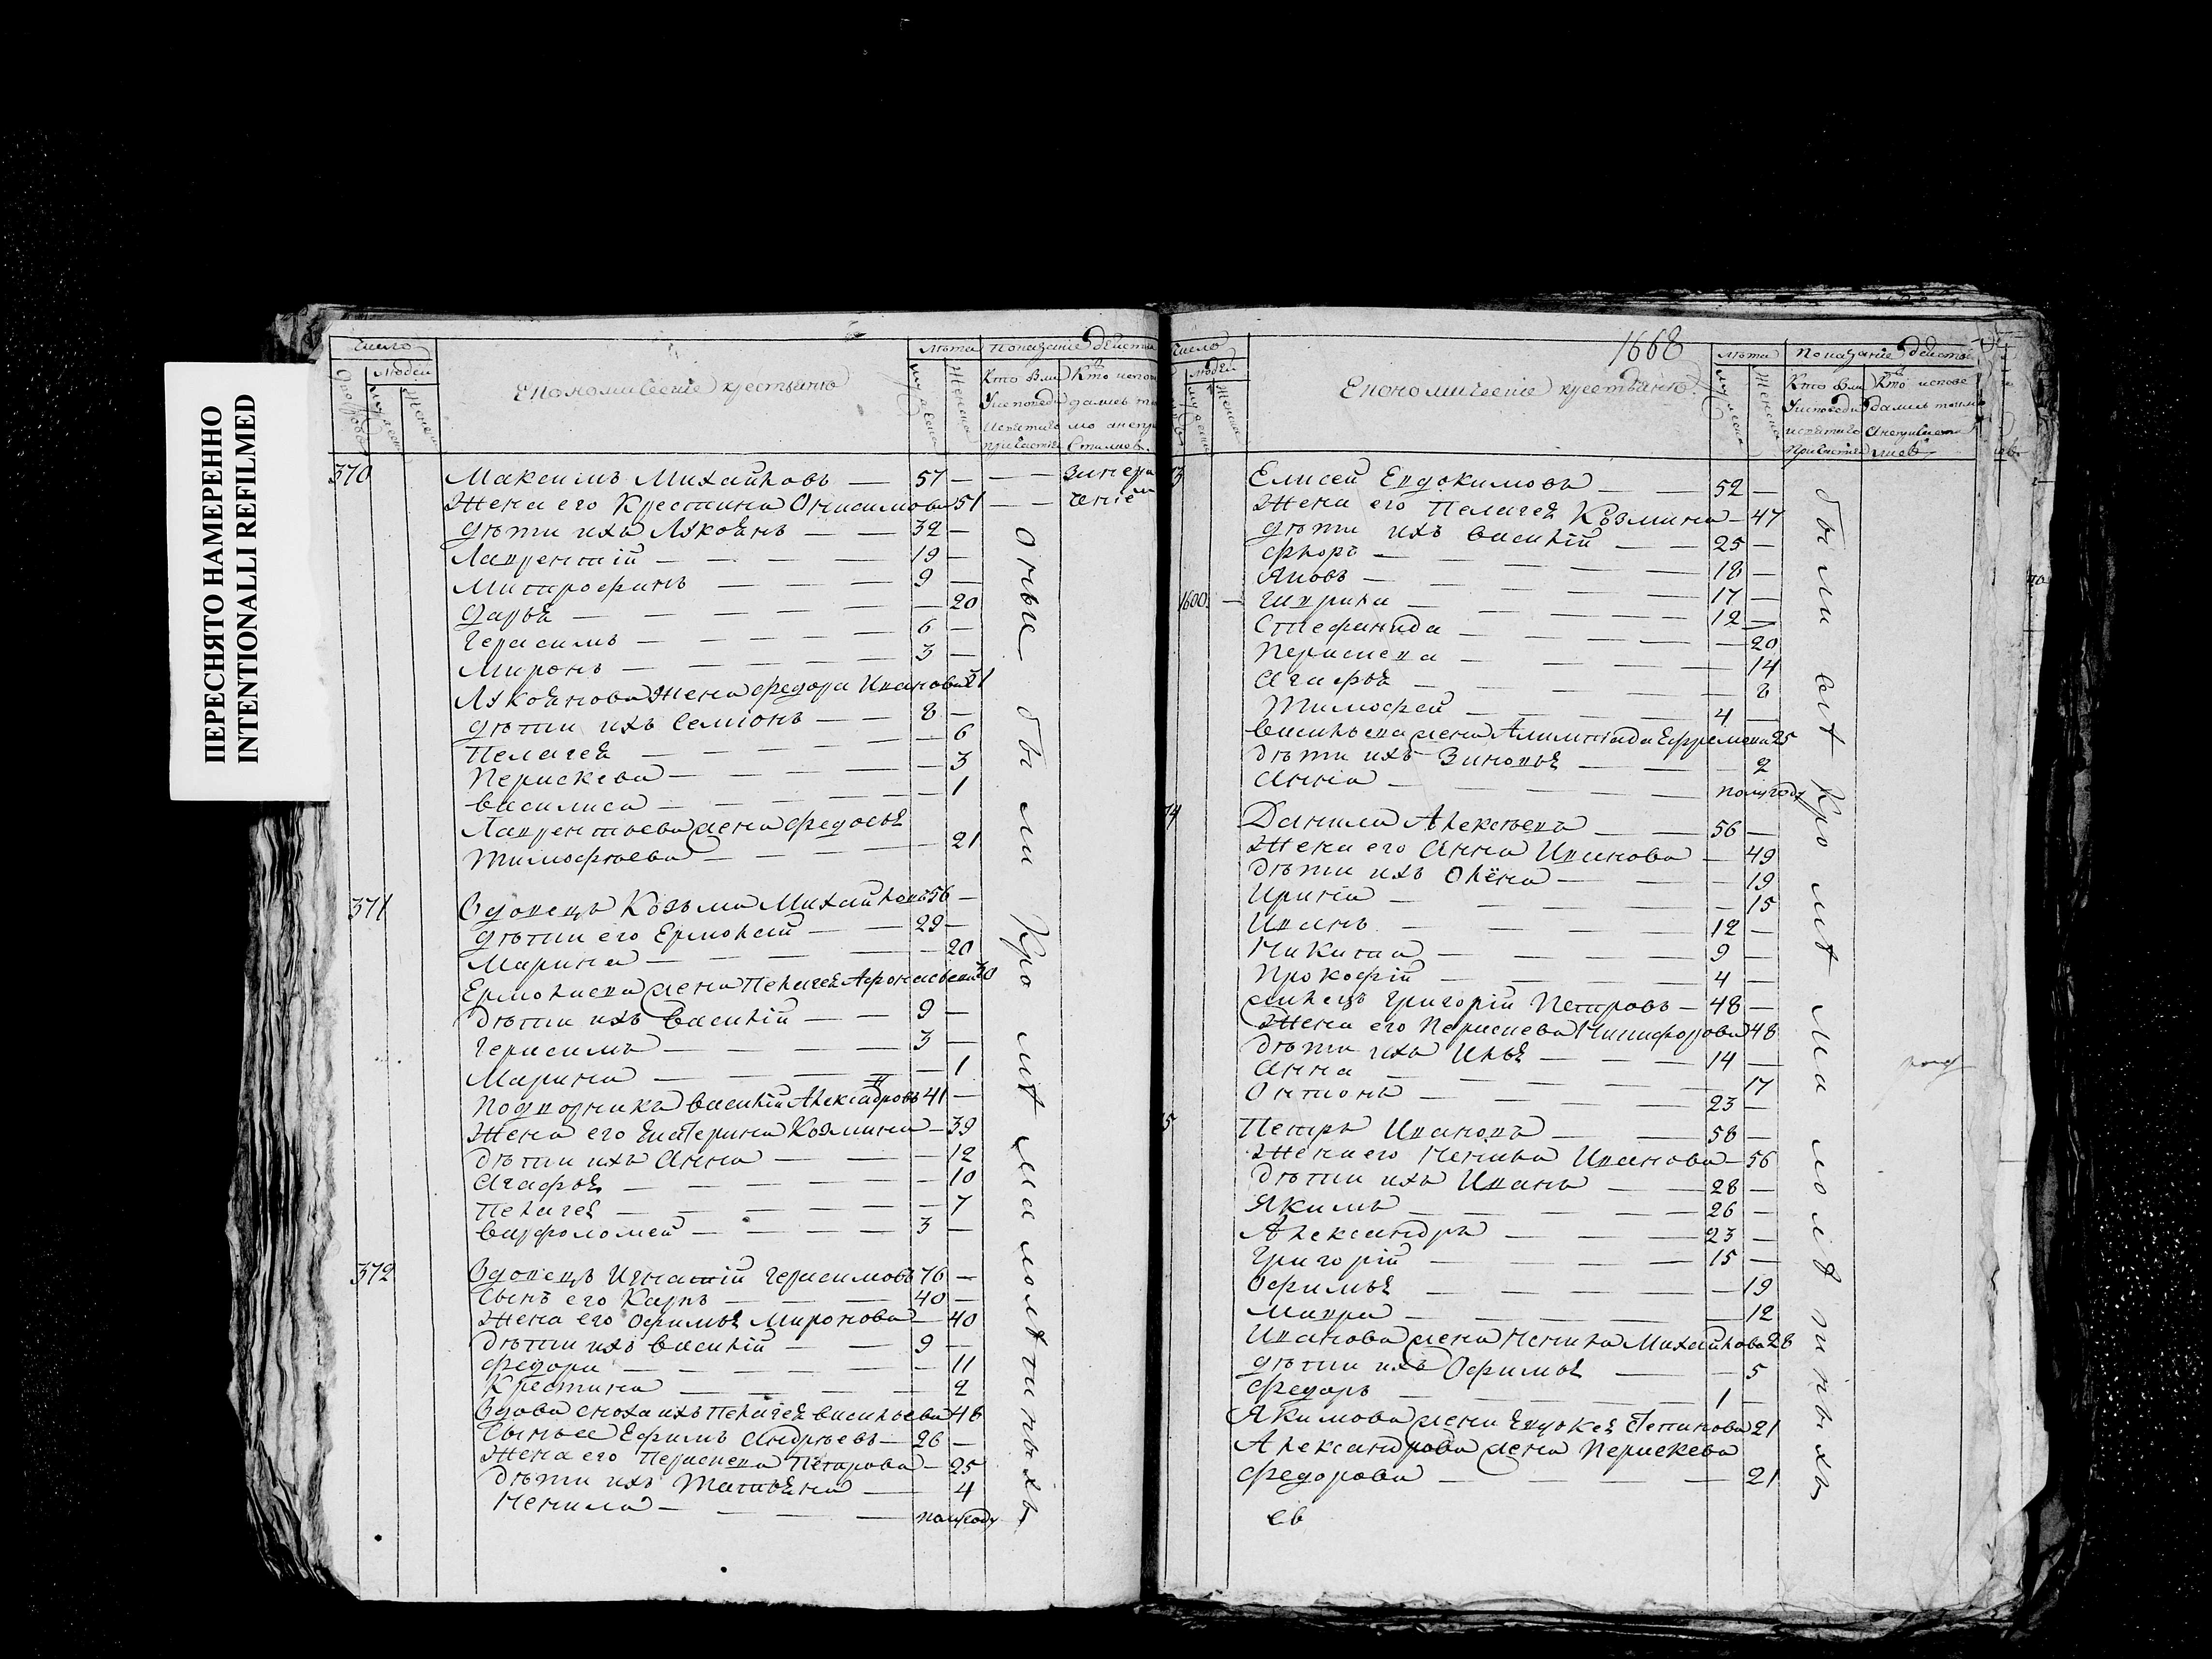 ПЕРЕСНЯТО НАМЕРЕННО
INTENTIONALLI REFILMED
Число
людей
Лѣта Показание действъ
Экономическіе крестьяне
370 Максимъ Михайловъ — 57 —
Жена его Крестина Онисимова 51
дѣти ихъ Лукоянъ — — 32 —
Лаврентій — 19 —
Митрофанъ — 9 —
Дарья — 20
Герасимъ — 6 —
Миронъ — 3 —
Лукоянова жена Федора Иванова 31
дѣти ихъ Семіонъ — 8 —
Пелагея — 6
Пераскева — 3
Василиса — 1
Лаврентьева жена Федосья
Тимофѣева — 21
371 Вдовецъ Козьма Михайловъ 56 —
дѣти его Ермолай — 29 —
Марина — 20
Ермолаева жена Пелагея Афонасьева 30
дѣти ихъ Василій — 9 —
Герасимъ — 3 —
Марина — 1
Подворникъ Василій Александровъ 41 —
Жена его Екатерина Козмина — 39
дѣти ихъ Анна — 12
Агафья — 10
Пелагея — 7
Варфоломей — 3 —
372 Вдовецъ Игнатій Герасимовъ 76 —
Сынъ его Карпъ — 40 —
Жена его Офимья Миронова — 40
дѣти ихъ Василій — 9 —
Федора — 11
Крестина — 2
Вдова сноха ихъ Пелагея Васильева 48
Сынъ ея Ефимъ Андрѣевъ — 26 —
Жена его Пераскева Петрова — 25
дѣти ихъ Татьяна — 4
Ненила — полугоду
оные были кромѣ малолѣтныхъ
1668
Число
людей
Лѣта Показание действъ
Экономическіе крестьяне
Елисей Евдокимовъ — 52 —
Жена его Пелагея Козмина — 47
дѣти ихъ Василій — 25 —
Флоръ — 18 —
Яковъ — 17 —
1600 Гаврила — 12 —
Стефанида — 20
Пераскева — 14
Агафья — 8
Тимофей — 4 —
Васильева жена Алимпіада Ефремова 25
дѣти ихъ Зиновья — 2
Анна — полугоду
74 Данила Алексѣевъ — 56 —
Жена его Анна Иванова — 49
дѣти ихъ Олёна — 19
Ирина — 15
Иванъ — 12 —
Никита — 9 —
Прокофій — 4 —
Григорій Петровъ — 48 —
Жена его Пераскева Никифорова 48
дѣти ихъ Илья — 14 —
Анна — 17
Онтонъ — 23 —
5 Петръ Ивановъ — 58 —
Жена его Ненила Иванова — 56
дѣти ихъ Иванъ — 28 —
Якимъ — 26 —
Александръ — 23 —
Григорій — 15 —
Офимья — 19
Мавра — 12
Иванова жена Ненила Михайлова 28
дѣти ихъ Офимья — 5
Федоръ — 1 —
Якимова жена Евдокея Степанова 21
Александрова жена Пераскева
Федорова — 21
были всѣ кромѣ малолѣтныхъ